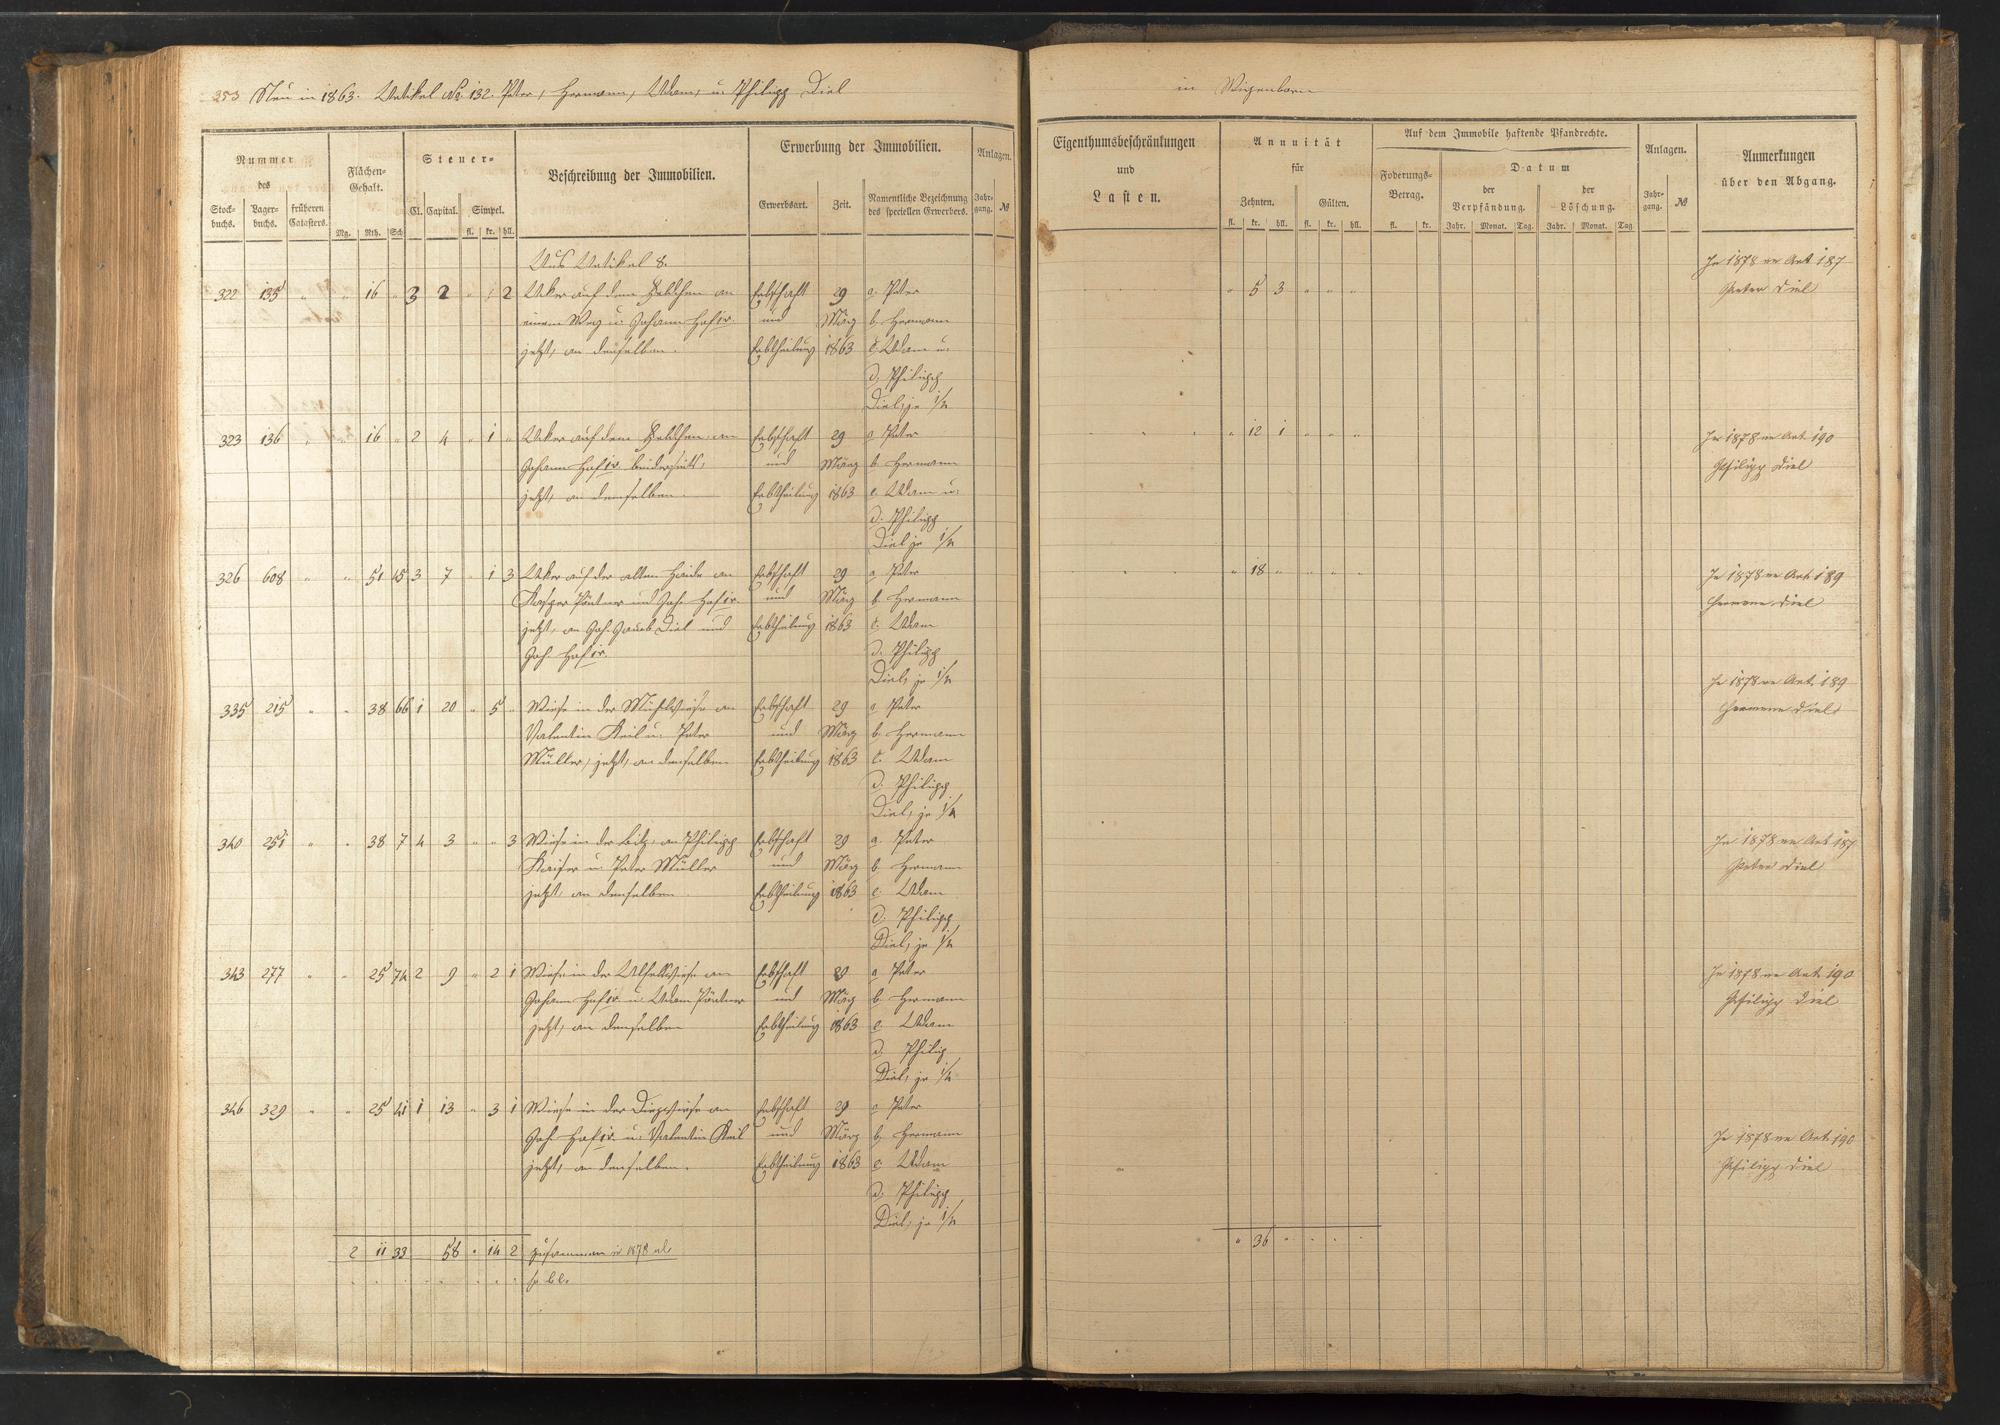 353 Neu in 1863. Artikel No. 132. Peter, Hermann, Adam, u. Philipp Diel
in
Nummer
des
Stock-
buchs.
Lager-
buchs.
früheren
Catasters.
Flächen-
Gehalt.
Mg. Rth. Sch.
Steuer-
Cl. Capital. Simpel.
fl. kr. hll.
Beschreibung der Immobilien.
Erwerbung der Immobilien.
Erwerbsart. Zeit.
Namentliche Bezeichnung
des speciellen Erwerbers.
Anlagen.
Jahr-
gang.
№
Eigenthumsbeschränkungen
und
Lasten.
Annuität
für
Zehnten. Gülten.
fl. kr. hll. fl. kr. hll.
Auf dem Immobile haftende Pfandrechte.
Foderungs-
Betrag.
fl. kr.
Datum
der
Verpfändung.
der
Löschung.
Jahr. Monat. Tag. Jahr. Monat. Tag.
Anlagen.
Jahr-
gang.
№
Anmerkungen
über den Abgang.
Aus Artikel 8.
322 135 " " 16 " 3 2 " 2 Acker auf dem an Erbschaft 29 a. Peter " 5 3 " " "
einem Weg u. Johann und März b. Hermann
jetzt, an denselben. Erbtheilung 1863 c. Adam u.
d. Philipp
Diel, je 1/4
In 1878 an Art 187
Peter Diel
323 136 " " 16 " 2 4 " 1 " Acker auf dem an Erbschaft 29 a. Peter " 12 1 " " "
Johann beiderseits, und März b. Hermann
jetzt, an demselben. Erbtheilung 1863 c. Adam u.
d. Philipp
Diel je 1/4
In 1878 an Art. 190
Philipp Diel
326 608 " " 51 45 3 7 " 1 3 Acker auf der alten Haide an Erbschaft 29 a. Peter " 18 " " " "
und Joh. und März b. Hermann
jetzt, an Joh. Jacob Diel und Erbtheilung 1863 c. Adam
Joh. d. Philipp
Diel, je 1/4
In 1878 an Art. 189
Hermann Diel
335 215 " " 38 66 1 20 " 5 " Wiese in der Mühlwiese an Erbschaft 29 a. Peter
Valentin Keil u. Peter und März b. Hermann
Müller, jetzt, an denselben Erbtheilung 1863 c. Adam
d. Philipp
Diel, je 1/4
In 1878 an Art. 189
Hermann Diel
340 251 " " 38 7 4 3 " " 3 Wiese in der an Philipp Erbschaft 29 a. Peter
Kaiser u. Peter Müller und März b. Hermann
jetzt, an denselben. Erbtheilung 1863 c. Adam
d. Philipp
Diel, je 1/4
In 1878 an Art 187
Peter Diel
343 277 " " 25 74 2 9 " 2 1 Wiese in der an Erbschaft 29 a. Peter
Johann u. Adam und März b. Hermann
jetzt, an denselben Erbtheilung 1863 c. Adam
d. Philip
Diel, je 1/4
In 1878 an Art. 190
Philipp Diel
346 329 " " 25 41 1 13 " 3 1 Wiese in der an Erbschaft 29 a. Peter
Joh. u. Valentin Keil und März b. Hermann
jetzt, an denselben. Erbtheilung 1863 c. Adam
d. Philipp
Diel, je 1/4
In 1878 an Art. 190
Philipp Diel
2 11 33 58 " 14 2 zusammen in 1878 ab. " 36 " " " "